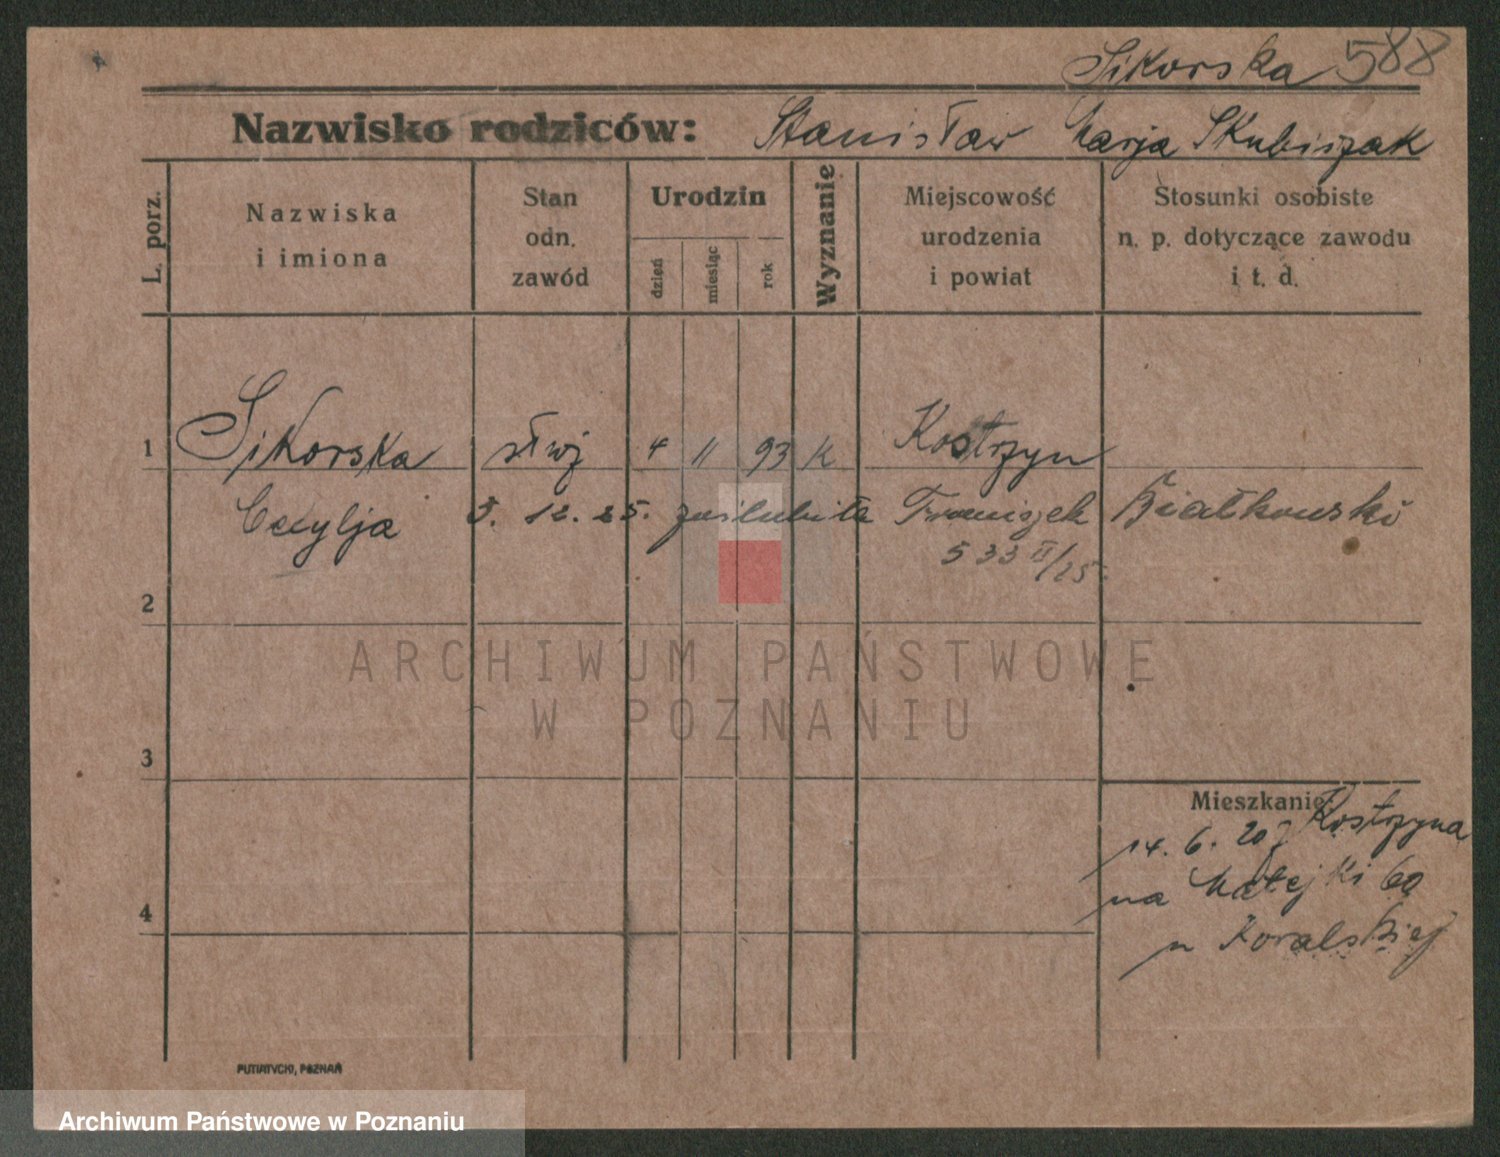 Sikorska 588
Nazwisko rodziców: Stanisław Marja Skubiszak
L. porz.
Nazwiska
i imiona
Stan
odn.
zawód
Urodzin
dzień
miesiąc
rok
Wyznanie
Miejscowość
urodzenia
i powiat
Stosunki osobiste
n. p. dotyczące zawodu
i t. d.
1 Sikorska służ 4 11 93 k Kostrzyn
Cecylja 5. 12. 25. zaślubiła Franciszek Białkowski
533 II/25.
2
3
4
Mieszkanie
14. 6. 20 z Kostrzyna
na Matejki 60
u Koralskiej
PUTIATYCKI, POZNAŃ
ARCHIWUM PAŃSTWOWE
W POZNANIU
Archiwum Państwowe w Poznaniu